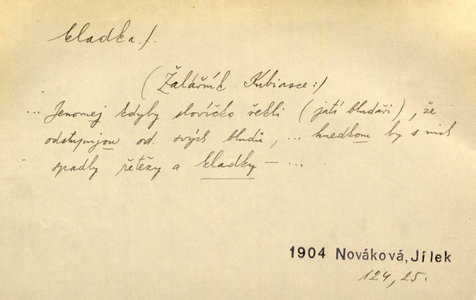 kladka f.
(Žalářník Kubiasce:)
... Jenomej kdyby slovíčko řekli (jatí bludaři), že
odstupujou od svých bludů, ... hnedkom by s nich
spadly řetězy a kladky — ...
1904 Nováková, Jílek
124, 25.